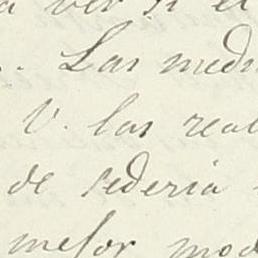 a ver si el
Las medi
V. las real
de sederia
mejor mod